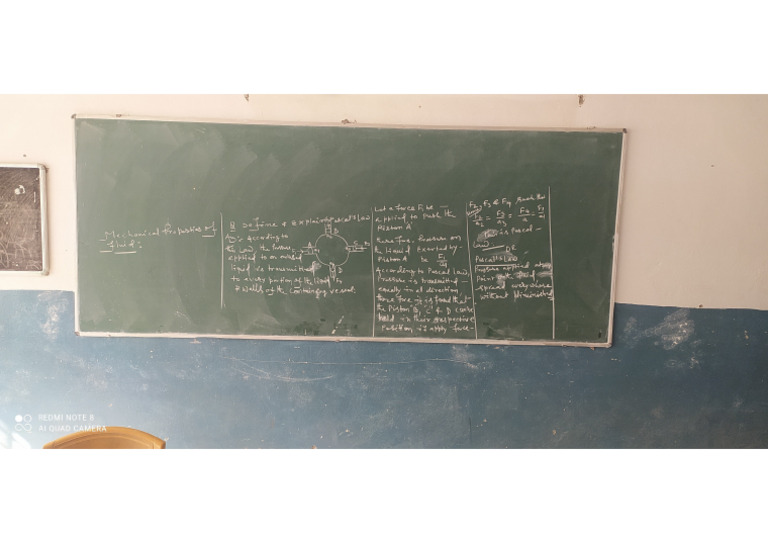 Mechanical Properties of
fluid:-
Q Define & explain Pascal's Law
Ans:- According to
this Law, the Pressure
applied to an enclosed
liquid is transmitted
to every portion of the liquid
& Walls of the containing vessel.
A
B
C
D
Let a force F1 be
applied to push the
Piston A
Therefore, Pressure on
the liquid exerted by-
Piston A be F1/a1
According to Pascal Law,
Pressure is transmitted -
equally in all direction
therefore, it is found that
the Piston B, C & D
held in their respective
Position if apply force-
F2, F3 & F4 Such that
F2/a2 = F3/a3 = F4/a = F1/a1
This is Pascal-
Law
OR
Pascal's Law
Pressure applied at any
Point
spread every where
without
REDMI NOTE 8
AI QUAD CAMERA